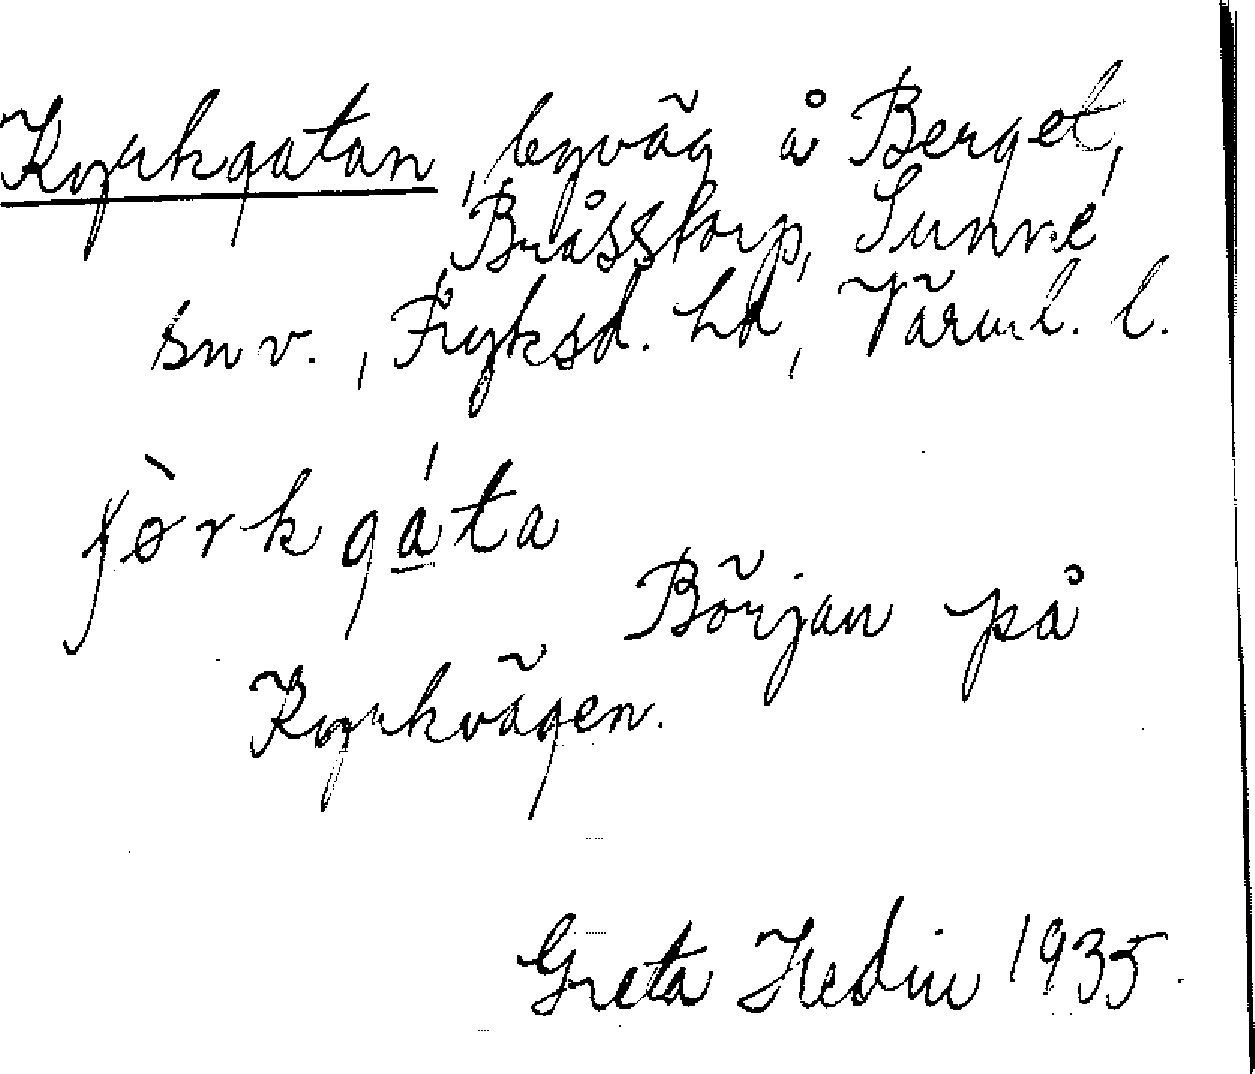 Kyrkgatan, byväg å Berget,
Bråsstorp, Sunne
snv., Fryksd. hd, Värml. l.
ʃo᷈̀rkgáta
Början på
Kyrkvägen.
Greta Hedin 1935.